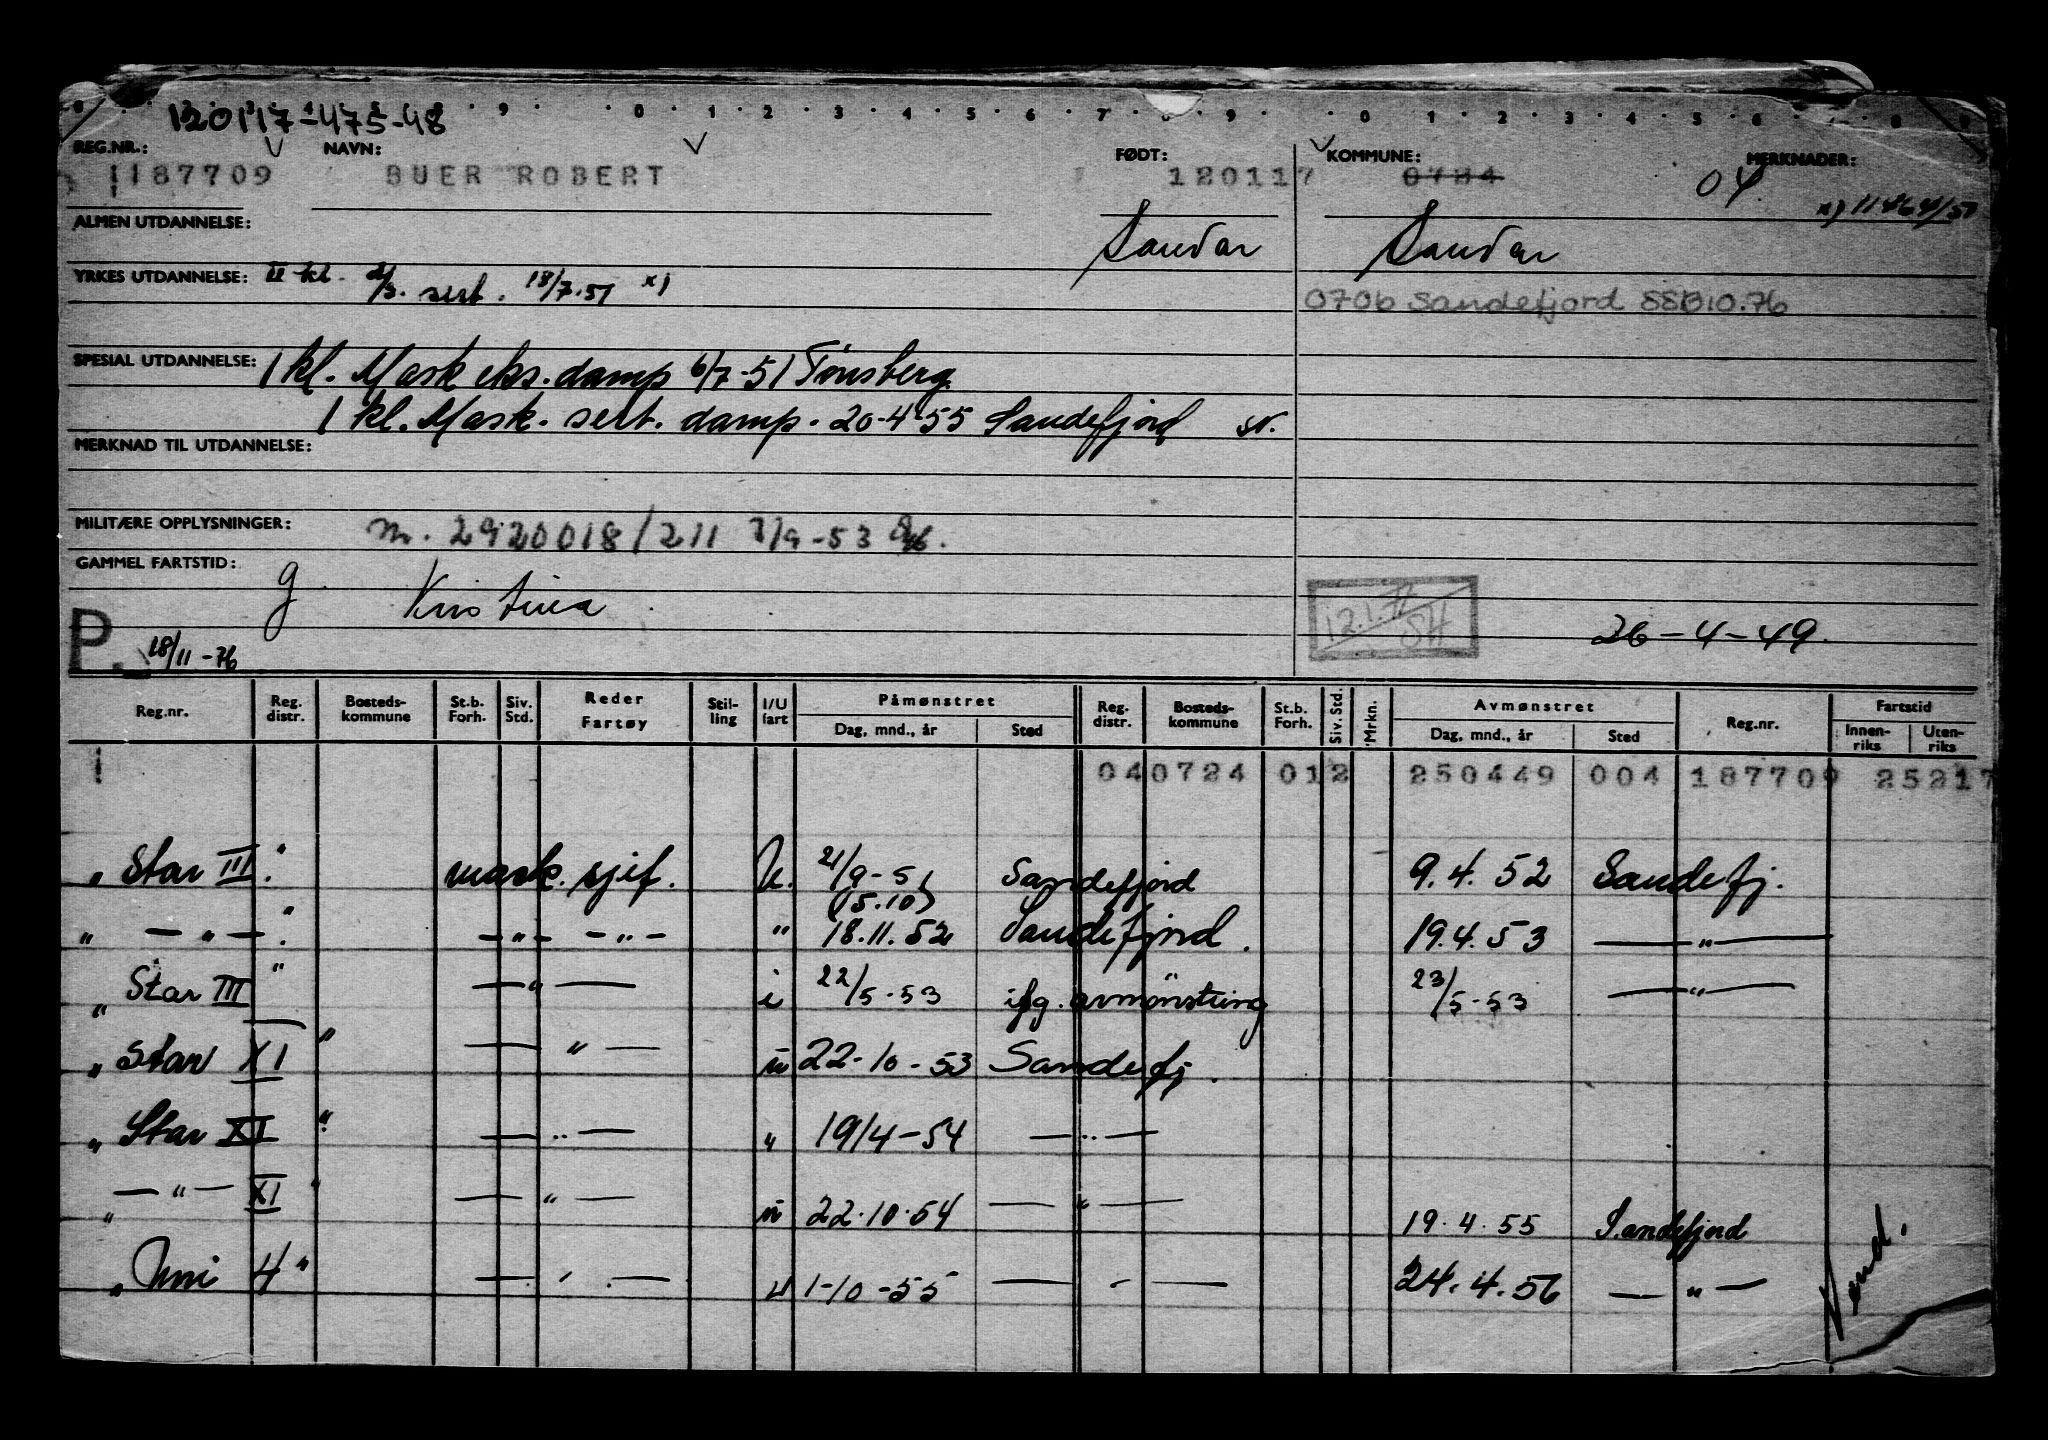 120117-475-48
9 0 1 2 3 4 5 6 7 8 9 0 1 2 3 4 5 6 7 8 9
REG.NR.: NAVN: FØDT: KOMMUNE: MERKNADER:
1187709 BUER ROBERT 120117 0724 04
x) 11464/51
ALMEN UTDANNELSE: Sandar Sandar
YRKES UTDANNELSE: II kl. sert. 18/7.51 x)
0706 Sandefjord SSB10.76
SPESIAL UTDANNELSE: 1 kl. Mask eks. damp 6/7-51 Tønsberg
1 kl. Mask. sert. damp. 20-4-55 Sandefjord
MERKNAD TIL UTDANNELSE:
MILITÆRE OPPLYSNINGER: m. 2920018/211 7/9-53
GAMMEL FARTSTID: g Kristina
P. 18/11-76 12.1.77 SH 26-4-49.
Reg.nr. Reg. distr. Bosteds-kommune St.b. Forh. Siv. Std. Reder Fartøy Stil-ling I/U fart Påmønstret Dag, mnd., år Sted Reg. distr. Bosteds-kommune St.b. Forh. Siv. Std. Mrkn. Avmønstret Dag, mnd., år Sted Reg.nr. Fartstid Innen-riks Uten-riks
1 040724 012 250449 004 187709 25217
" Star III " mask. sjef. U. 21/9-51 (15.10) Sandefjord 9.4.52 Sandefj.
" — " — " — " — — " — " 18.11.52 Sandefjord. 19.4.53 — " —
" Star III " — " — i 22/5-53 ifg. avmønstring 23/5-53 — " —
" Star XI " — " — u 22-10-53 Sandefj.
" Star XI " — " — " 19/4-54 — " —
" — " — XI " — " — u 22.10.54 — " — 19.4.55 Sandefjord
" Uni 4 " — " — u 1-10-55 — " — 24.4.56 — " —
Vend.